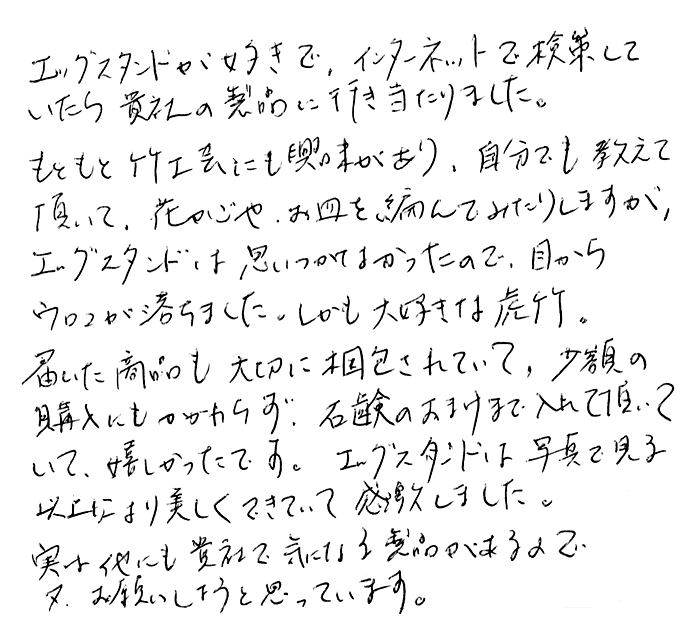 エッグスタンドが好きで、インターネットで検策して
いたら貴社の製品に行き当たりました。
もともと竹工芸にも興味があり、自分でも教えて
頂いて、花かごや、お皿を編んでみたりしますが、
エッグスタンドは思いつかなかったので、目から
ウロコが落ちました。しかも大好きな虎竹。
届いた商品も大切に梱包されていて、少額の
購入にもかかわらず、石鹸のおまけまで入れて頂いて
いて、嬉しかったです。エッグスタンドは写真で見る
以上により美しくできていて感激しました。
実は他にも貴社で気になる製品があるので
又、お願いしようと思っています。